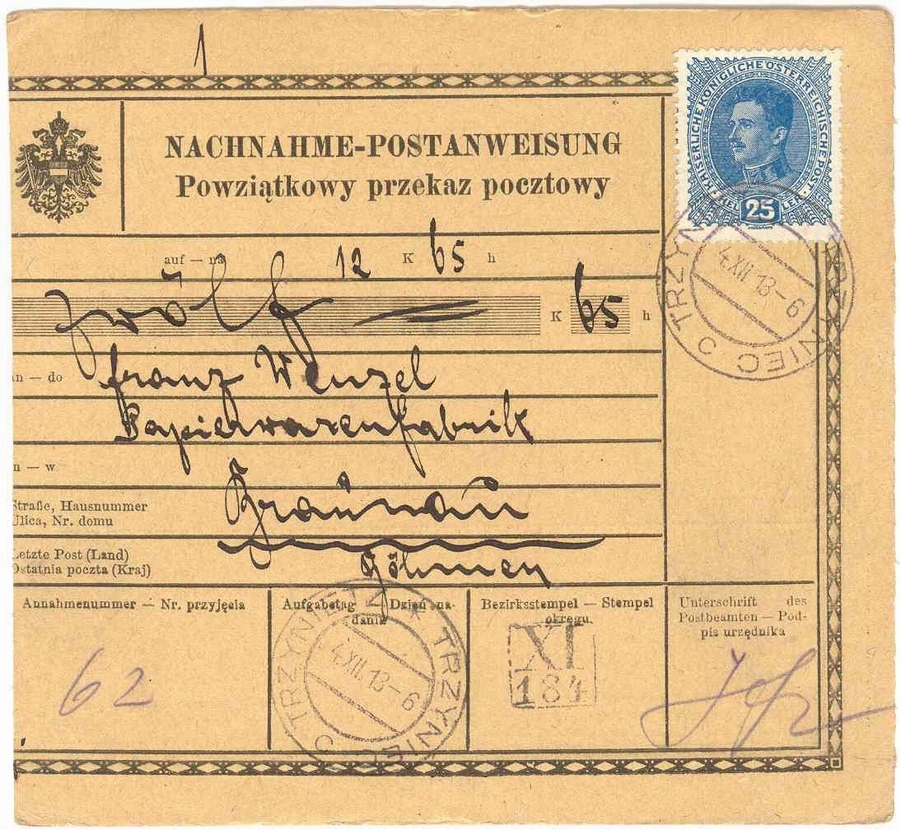 1
NACHNAHME-POSTANWEISUNG
Powziątkowy przekaz pocztowy
KAISERLICHE KÖNIGLICHE ÖSTERREICHISCHE POST
25
auf — na 12 K 65 h
zwölf K 65 h
TRZYNIEC
4.XII.18-6
an — do Franz Wenzel
Papierwarenfabrik
in — w
Braunau
Straße, Hausnummer
Ulica, Nr. domu
Letzte Post (Land)
Ostatnia poczta (Kraj)
Böhmen
Annahmenummer — Nr. przyjęcia
Aufgabetag — Dzień na-
dania
Bezirksstempel — Stempel
okręgu
Unterschrift des
Postbeamten — Pod-
pis urzędnika
62
TRZYNIETZ * TRZYNIEC
4.XII.18-6
XI
184